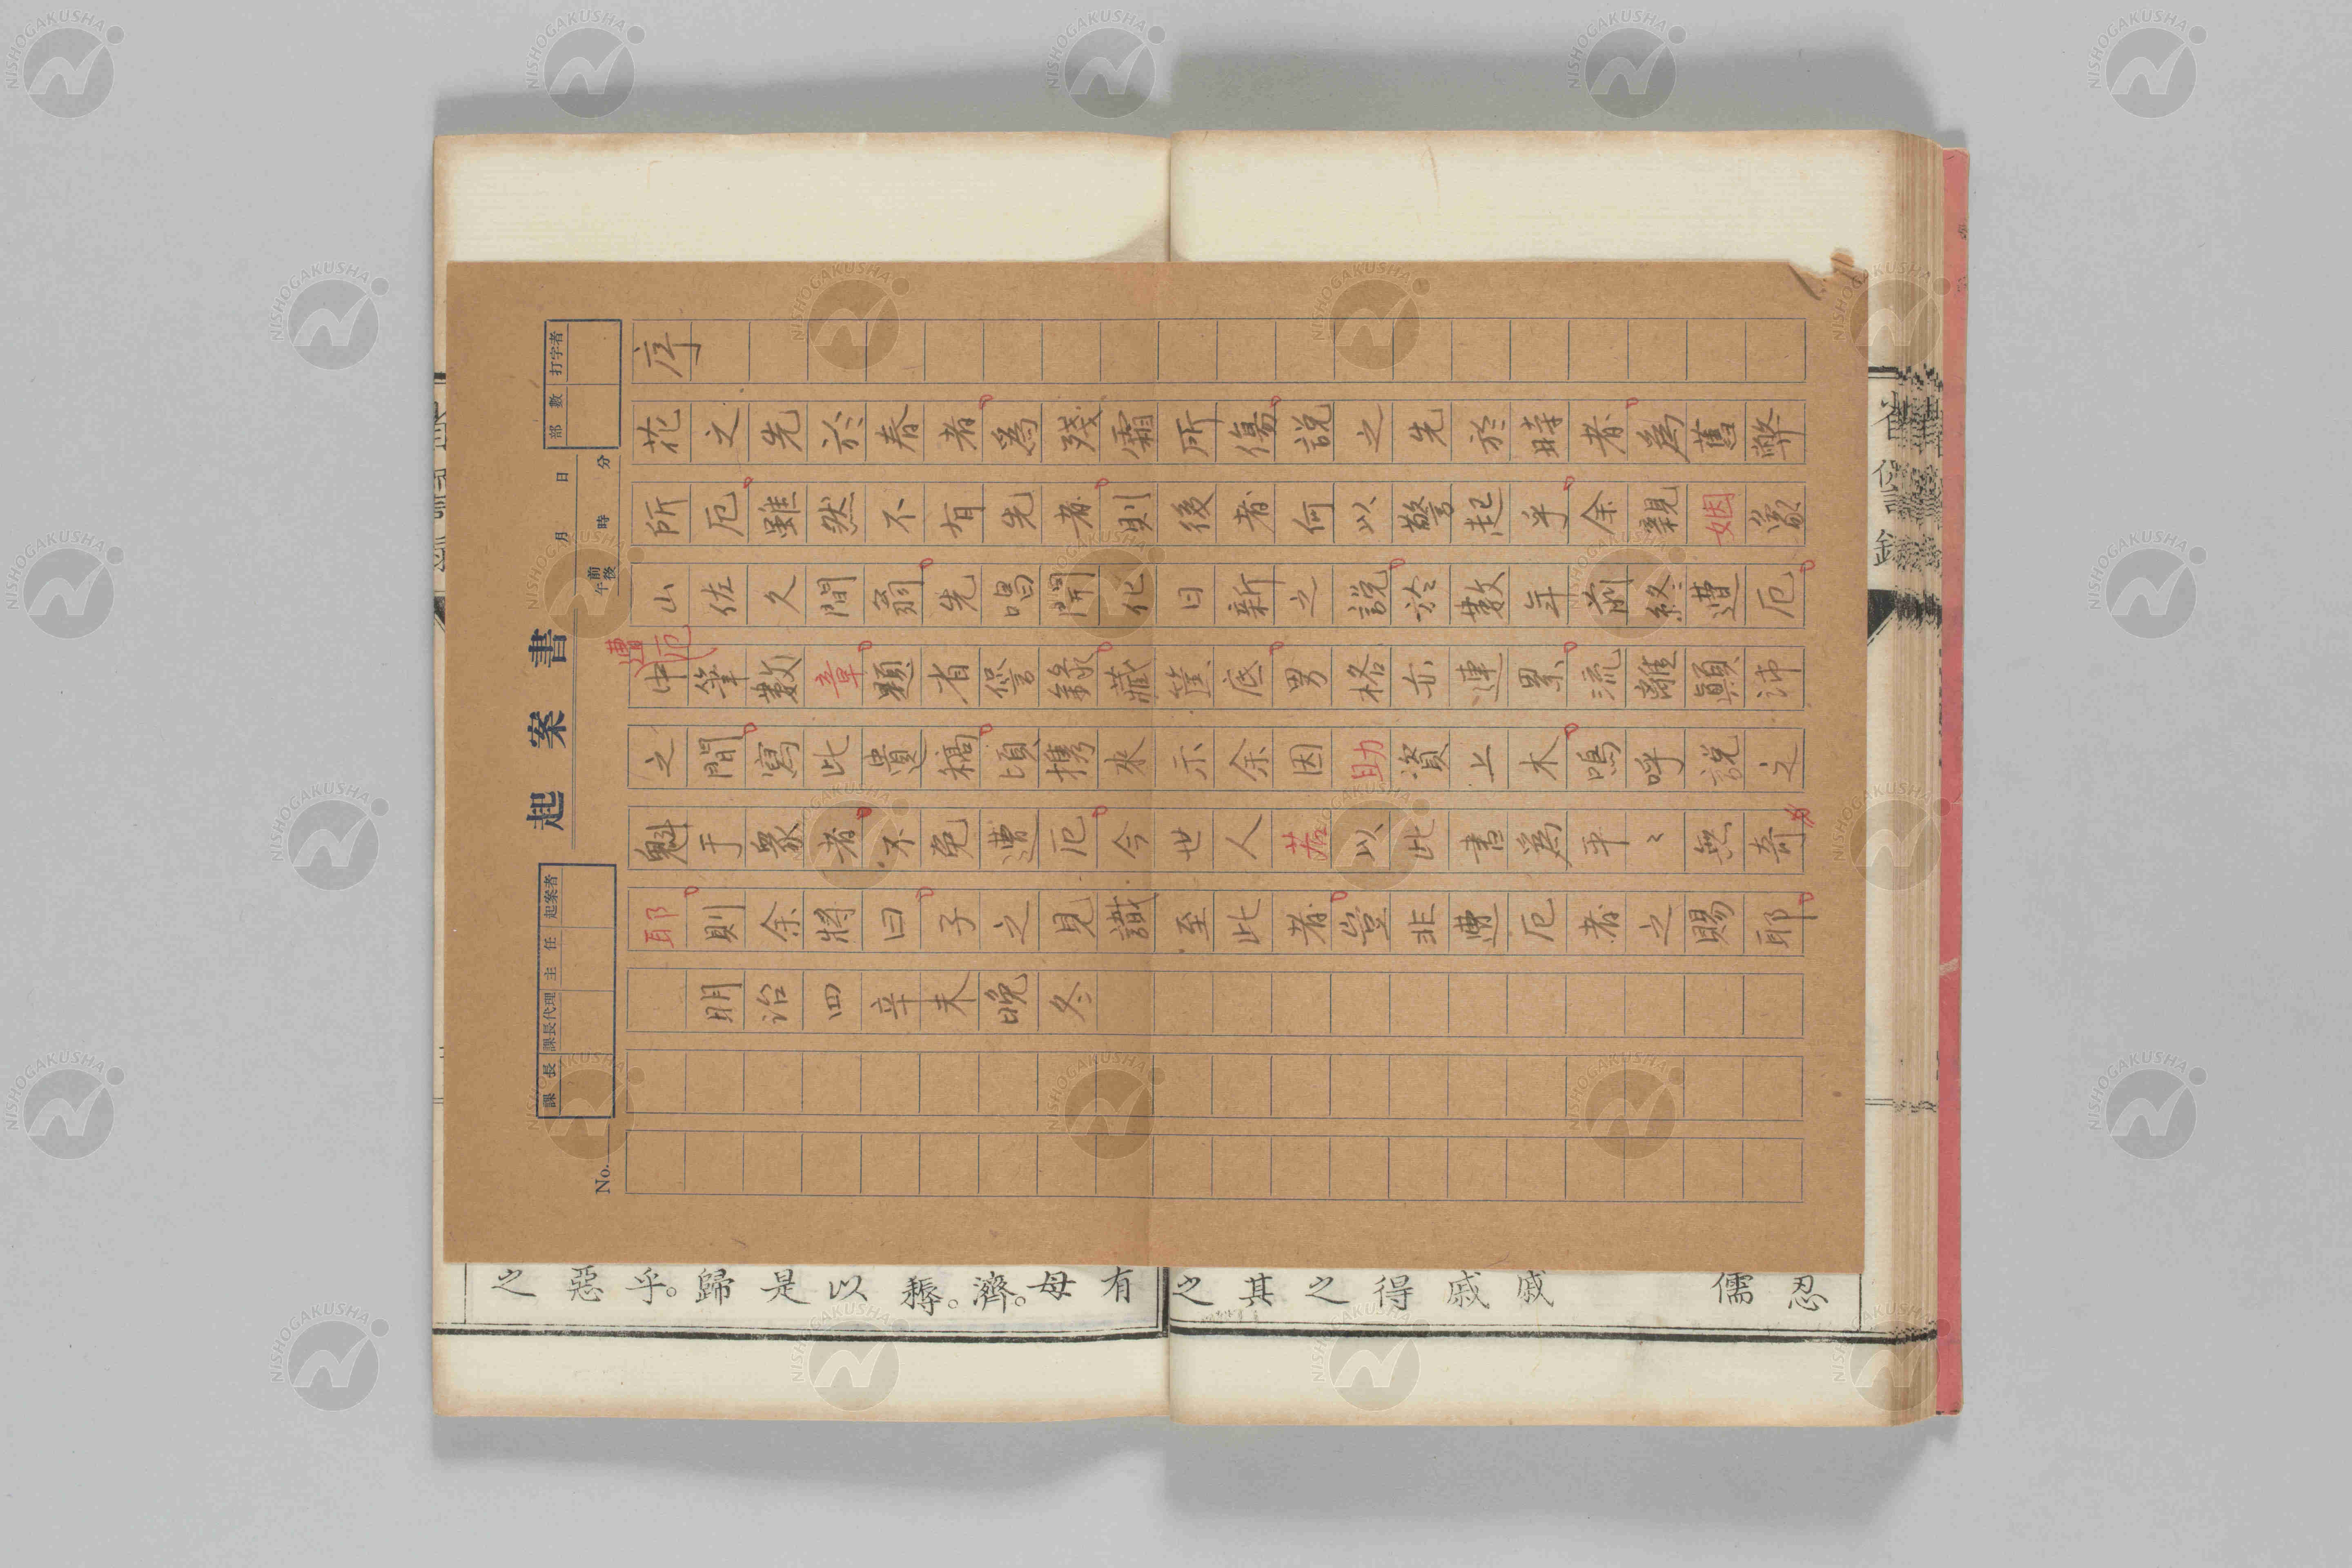 起案書
部數 打字者
月 日
午前後 時 分
課長 課長代理 主任 起案者
No.
序
花之先於春者。爲殘霜所傷。説之先於時者。爲舊弊
所厄。雖然不有先者。則後者何以警起乎。余親姻象
山佐久間翁。先唱開化日新之説。於數年前終遭厄。
遭厄
中筆數章。題省諐錄。藏筐底。男格亦連累。流離顛沛
之間。寫此遺稿。頃携來示余因助資上木。嗚呼説之
魁于衆者。不免遭厄。今世人若以此書爲平〻無奇
耶。則余將曰。子之見識至此者。豈非遭厄者之賜耶。
明治四辛未晩冬
省諐錄
忍
儒
戚
戚
得
之
其
之
有
母
濟。
耨。
以
是
歸
乎。
惡
之
NISHOGAKUSHA